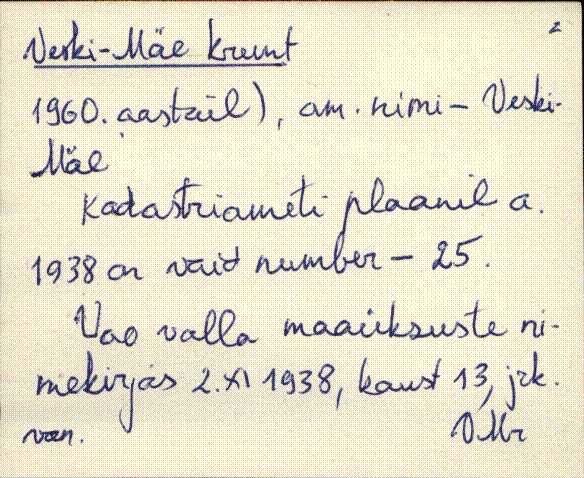 2
Veski-Mäe krunt
1960. aastail), am. nimi – Veski-
Mäe
Kadastriameti plaanil a.
1938 on vaid number – 25.
Vao valla maaüksuste ni-
mekirjas 2.XI 1938, kaust 13, jrk.
VMr